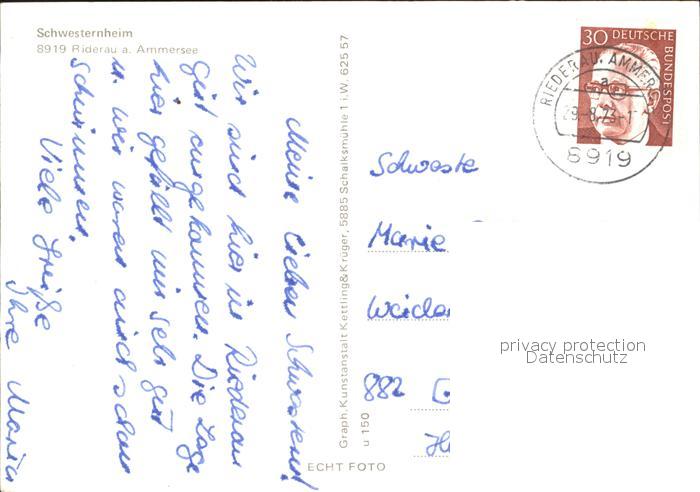 Schwesternheim
8919 Riderau a. Ammersee
Meine lieben Schwestern!
Wir sind hier in Riederau
gut angekommen. Die Lage
hier gefällt mir sehr gut
u. wir waren auch schon
schwimmen.
Viele Grüße
Ihre Maria
Graph. Kunstanstalt Kettling & Krüger, 5885 Schalksmühle 1 i.W. 625 57
u 150
ECHT FOTO
30 DEUTSCHE
BUNDESPOST
RIEDERAU, AMMER
a
29.-8.73-1
8919
Schweste
Marie
882
privacy protection
Datenschutz